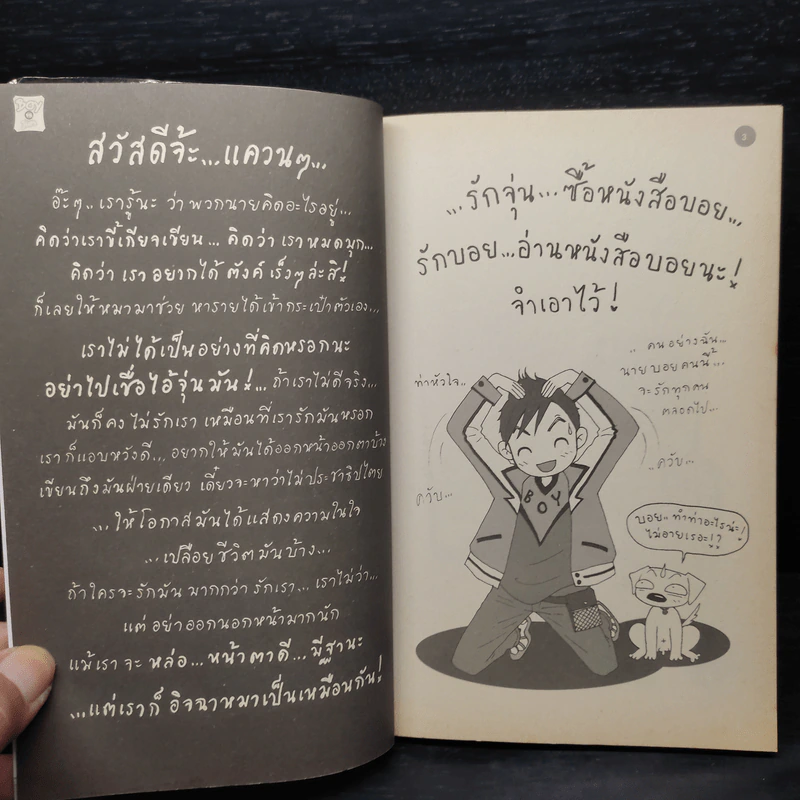 สวัสดีจ้ะ...แควนๆ...
อ๊ะๆ.. เรารู้นะ ว่าพวกนายคิดอะไรอยู่...
คิดว่าเราขี้เกียจเขียน... คิดว่า เราหมดมุก...
คิดว่า เราอยากได้ ตังค์ เร็งๆล่ะสิ!
ก็เลยให้หมามาช่วย หารายได้เข้ากระเป๋าตัวเอง...
เราไม่ได้เป็นอย่างที่คิดหรอกนะ
อย่าไปเชื่อไอ้จุ่นมัน!... ถ้าเราไม่ดีจริง...
มันก็คงไม่รักเรา เหมือนที่เรารักมันหรอก
เราก็แอบหวังดี... อยากให้มันได้ออกหน้าออกตาบ้าง
เขียนถึงมันฝ่ายเดียว เดี๋ยวจะหาว่าไม่ประชาธิปไตย
...ให้โอกาสมันได้แสดงความในใจ
...เปลือยชีวิตมันบ้าง...
ถ้าใครจะรักมัน มากกว่ารักเรา... เราไม่ว่า...
แต่ อย่าออกนอกหน้ามากนัก
แม้เราจะ หล่อ... หน้าตาดี... มีฐานะ
...แต่เราก็ อิจฉาหมาเป็นเหมือนกัน!
3
...รักจุ่น... ซื้อหนังสือบอย...
รักบอย...อ่านหนังสือบอยนะ!
จำเอาไว้!
.. คนอย่างฉัน..
นายบอยคนนี้..
จะรักทุกคน
ตลอดไป...
ท่าหัวใจ..
ควับ...
..ควับ..
BOY
บอย.. ทำท่าอะไรน่ะ!
ไม่อายเรอะ!?